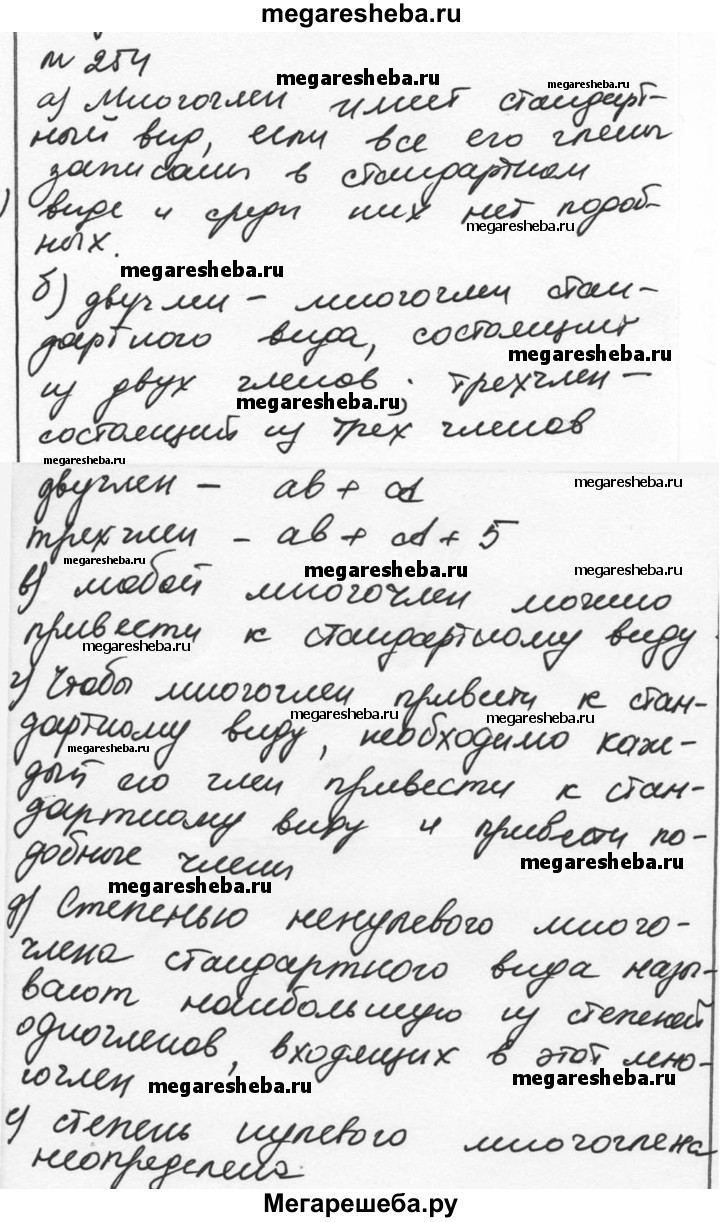 megaresheba.ru
№ 254
megaresheba.ru
megaresheba.ru
а) Многочлен имеет стандарт-
ный вид, если все его члены
записаны в стандартном
виде и среди них нет подоб-
megaresheba.ru
ных.
megaresheba.ru
б) двучлен – многочлен стан-
дартного вида, состоящий
megaresheba.ru
из двух членов; трехчлен –
megaresheba.ru
состоящий из трех членов
megaresheba.ru
двучлен – ab + cd
megaresheba.ru
трехчлен – ab + cd + 5
megaresheba.ru
megaresheba.ru
megaresheba.ru
в) любой многочлен можно
привести к стандартному виду.
megaresheba.ru
г) Чтобы многочлен привести к стан-
megaresheba.ru
megaresheba.ru
дартному виду, необходимо каж-
megaresheba.ru
дый его член привести к стан-
дартному виду и привести по-
добные члены
megaresheba.ru
megaresheba.ru
д) Степенью ненулевого много-
члена стандартного вида назы-
вают наибольшую из степеней
одночленов, входящих в этот мно-
гочлен
megaresheba.ru
megaresheba.ru
е) степень нулевого многочлена
неопределена
Мегарешеба.ру